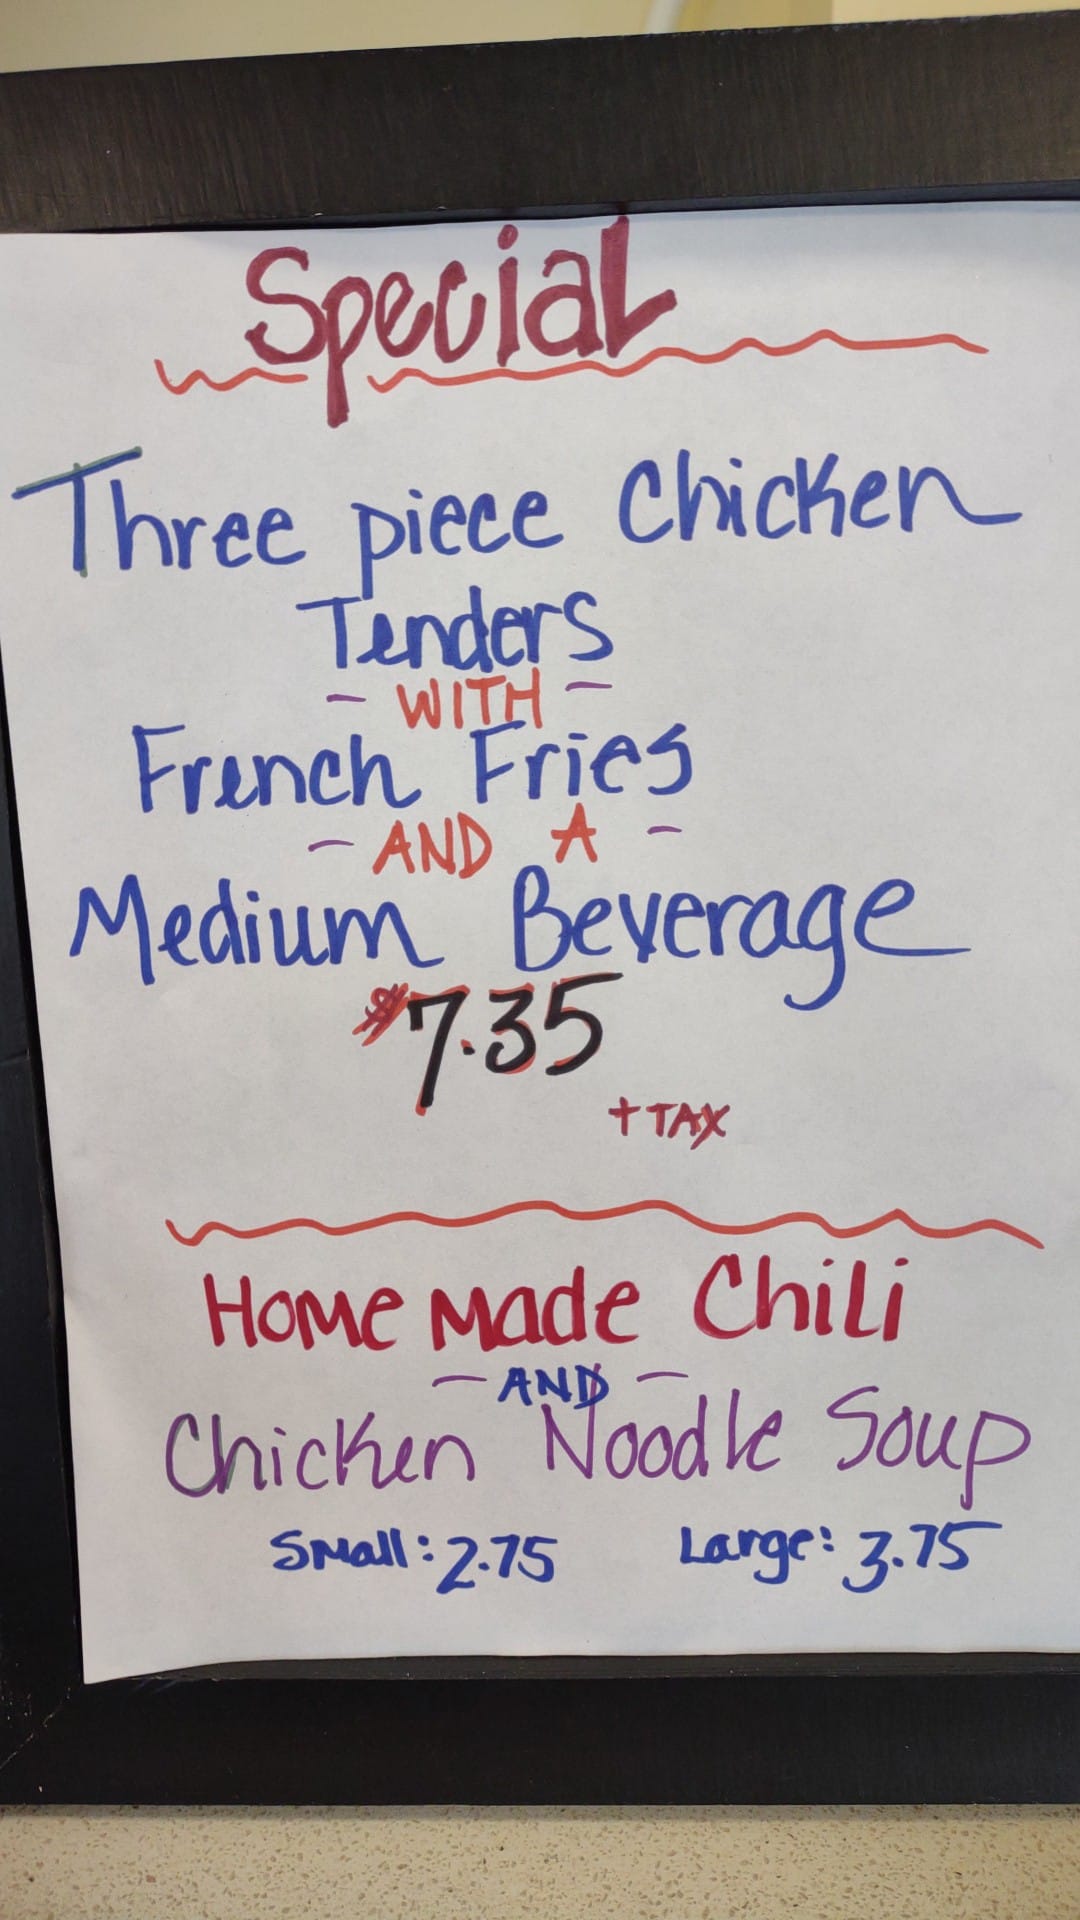 Special
Three piece Chicken
Tenders
- WITH -
French Fries
- AND A -
Medium Beverage
$7.35
+ TAX
Homemade Chili
- AND -
Chicken Noodle Soup
Small: 2.75 Large: 3.75